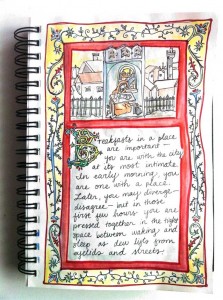 Breakfasts in a place
are important –
you are with the city
at its most intimate.
In early morning, you
are one with a place.
Later, you may diverge
disagree – but in those
first few hours you are
pressed together in the tight
space between waking and
sleep as dew lifts from
eyelids and streets.